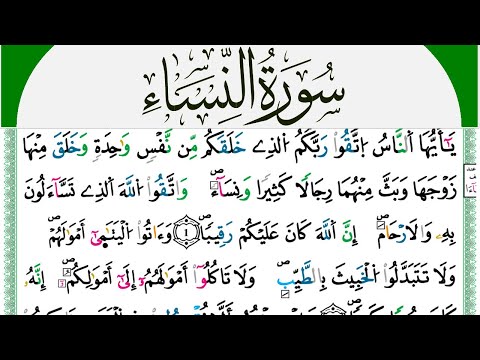 سُورَةُ النِّسَاءِ
يَٰٓأَيُّهَا اَ۬لنَّاسُ اُ۪تَّقُواْ رَبَّكُمُ اُ۬لذِے خَلَقَكُم مِّن نَّفْسٖ وَٰحِدَةٖ وَخَلَقَ مِنْهَا
زَوْجَهَا وَبَثَّ مِنْهُمَا رِجَالاٗ كَثِيراٗ وَنِسَآءٗۖ وَاتَّقُواْ اُ۬للَّهَ اَ۬لذِے تَسَّآءَلُونَ
بِهِۦ وَالَارْحَامَۖ إِنَّ اَ۬للَّهَ كَانَ عَلَيْكُمْ رَقِيباٗۖ ١ وَءَاتُواْ اُ۬لْيَتَٰمَىٰٓ أَمْوَٰلَهُمْۖ
وَلَا تَتَبَدَّلُواْ اُ۬لْخَبِيثَ بِالطَّيِّبِۖ وَلَا تَاكُلُوٓاْ أَمْوَٰلَهُمُۥٓ إِلَىٰٓ أَمْوَٰلِكُمُۥٓۖ إِنَّهُۥ